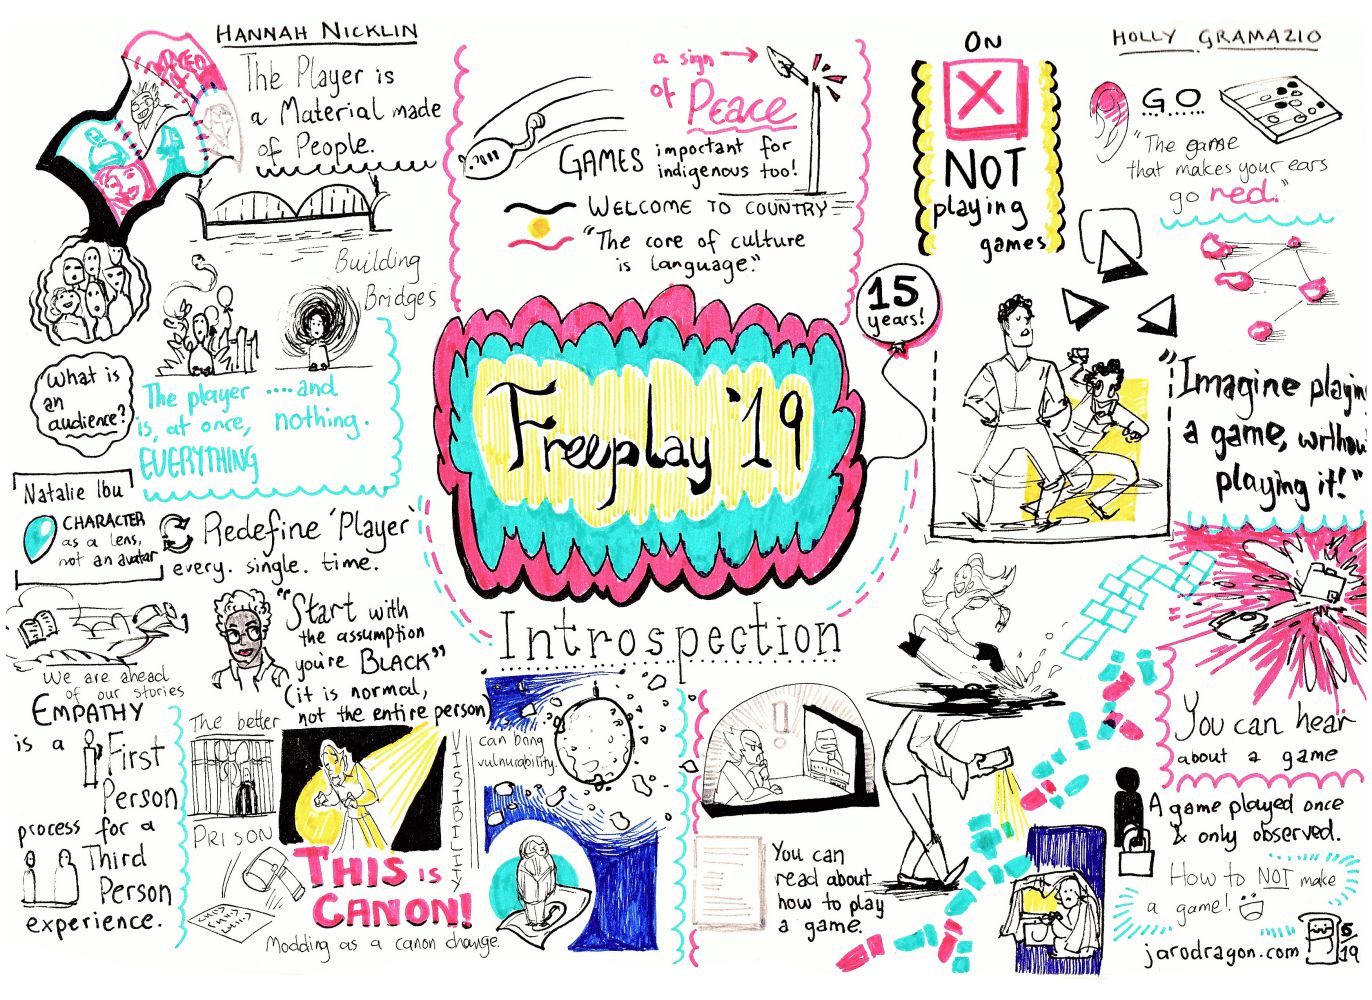 HANNAH NICKLIN
The Player is
a Material made
of People.
Building
Bridges
What is
an
audience?
The player
is, at once,
EVERYTHING
....and
nothing.
Natalie Ibu
CHARACTER
as a lens,
not an avatar
Redefine 'Player'
every. single. time.
We are ahead
of our stories
EMPATHY
is a
First
Person
process for a
Third
Person
experience.
"Start with
the assumption
you're BLACK"
(it is normal,
not the entire person)
The better
PRISON
THIS is
CANON!
Modding as a canon change.
VISIBILITY
can bring
vulnurability.
a sign
of Peace
GAMES important for
indigenous too!
WELCOME TO COUNTRY
"The core of culture
is language."
15
years!
Freeplay '19
Introspection
ON
X
NOT
playing
games
HOLLY GRAMAZIO
GO
"The game
that makes your ears
go red."
"Imagine playin
a game, withou
playing it!"
You can hear
about a game
You can
read about
how to play
a game.
A game played once
& only observed.
How to NOT make
a game!
jarodragon.com
5/19